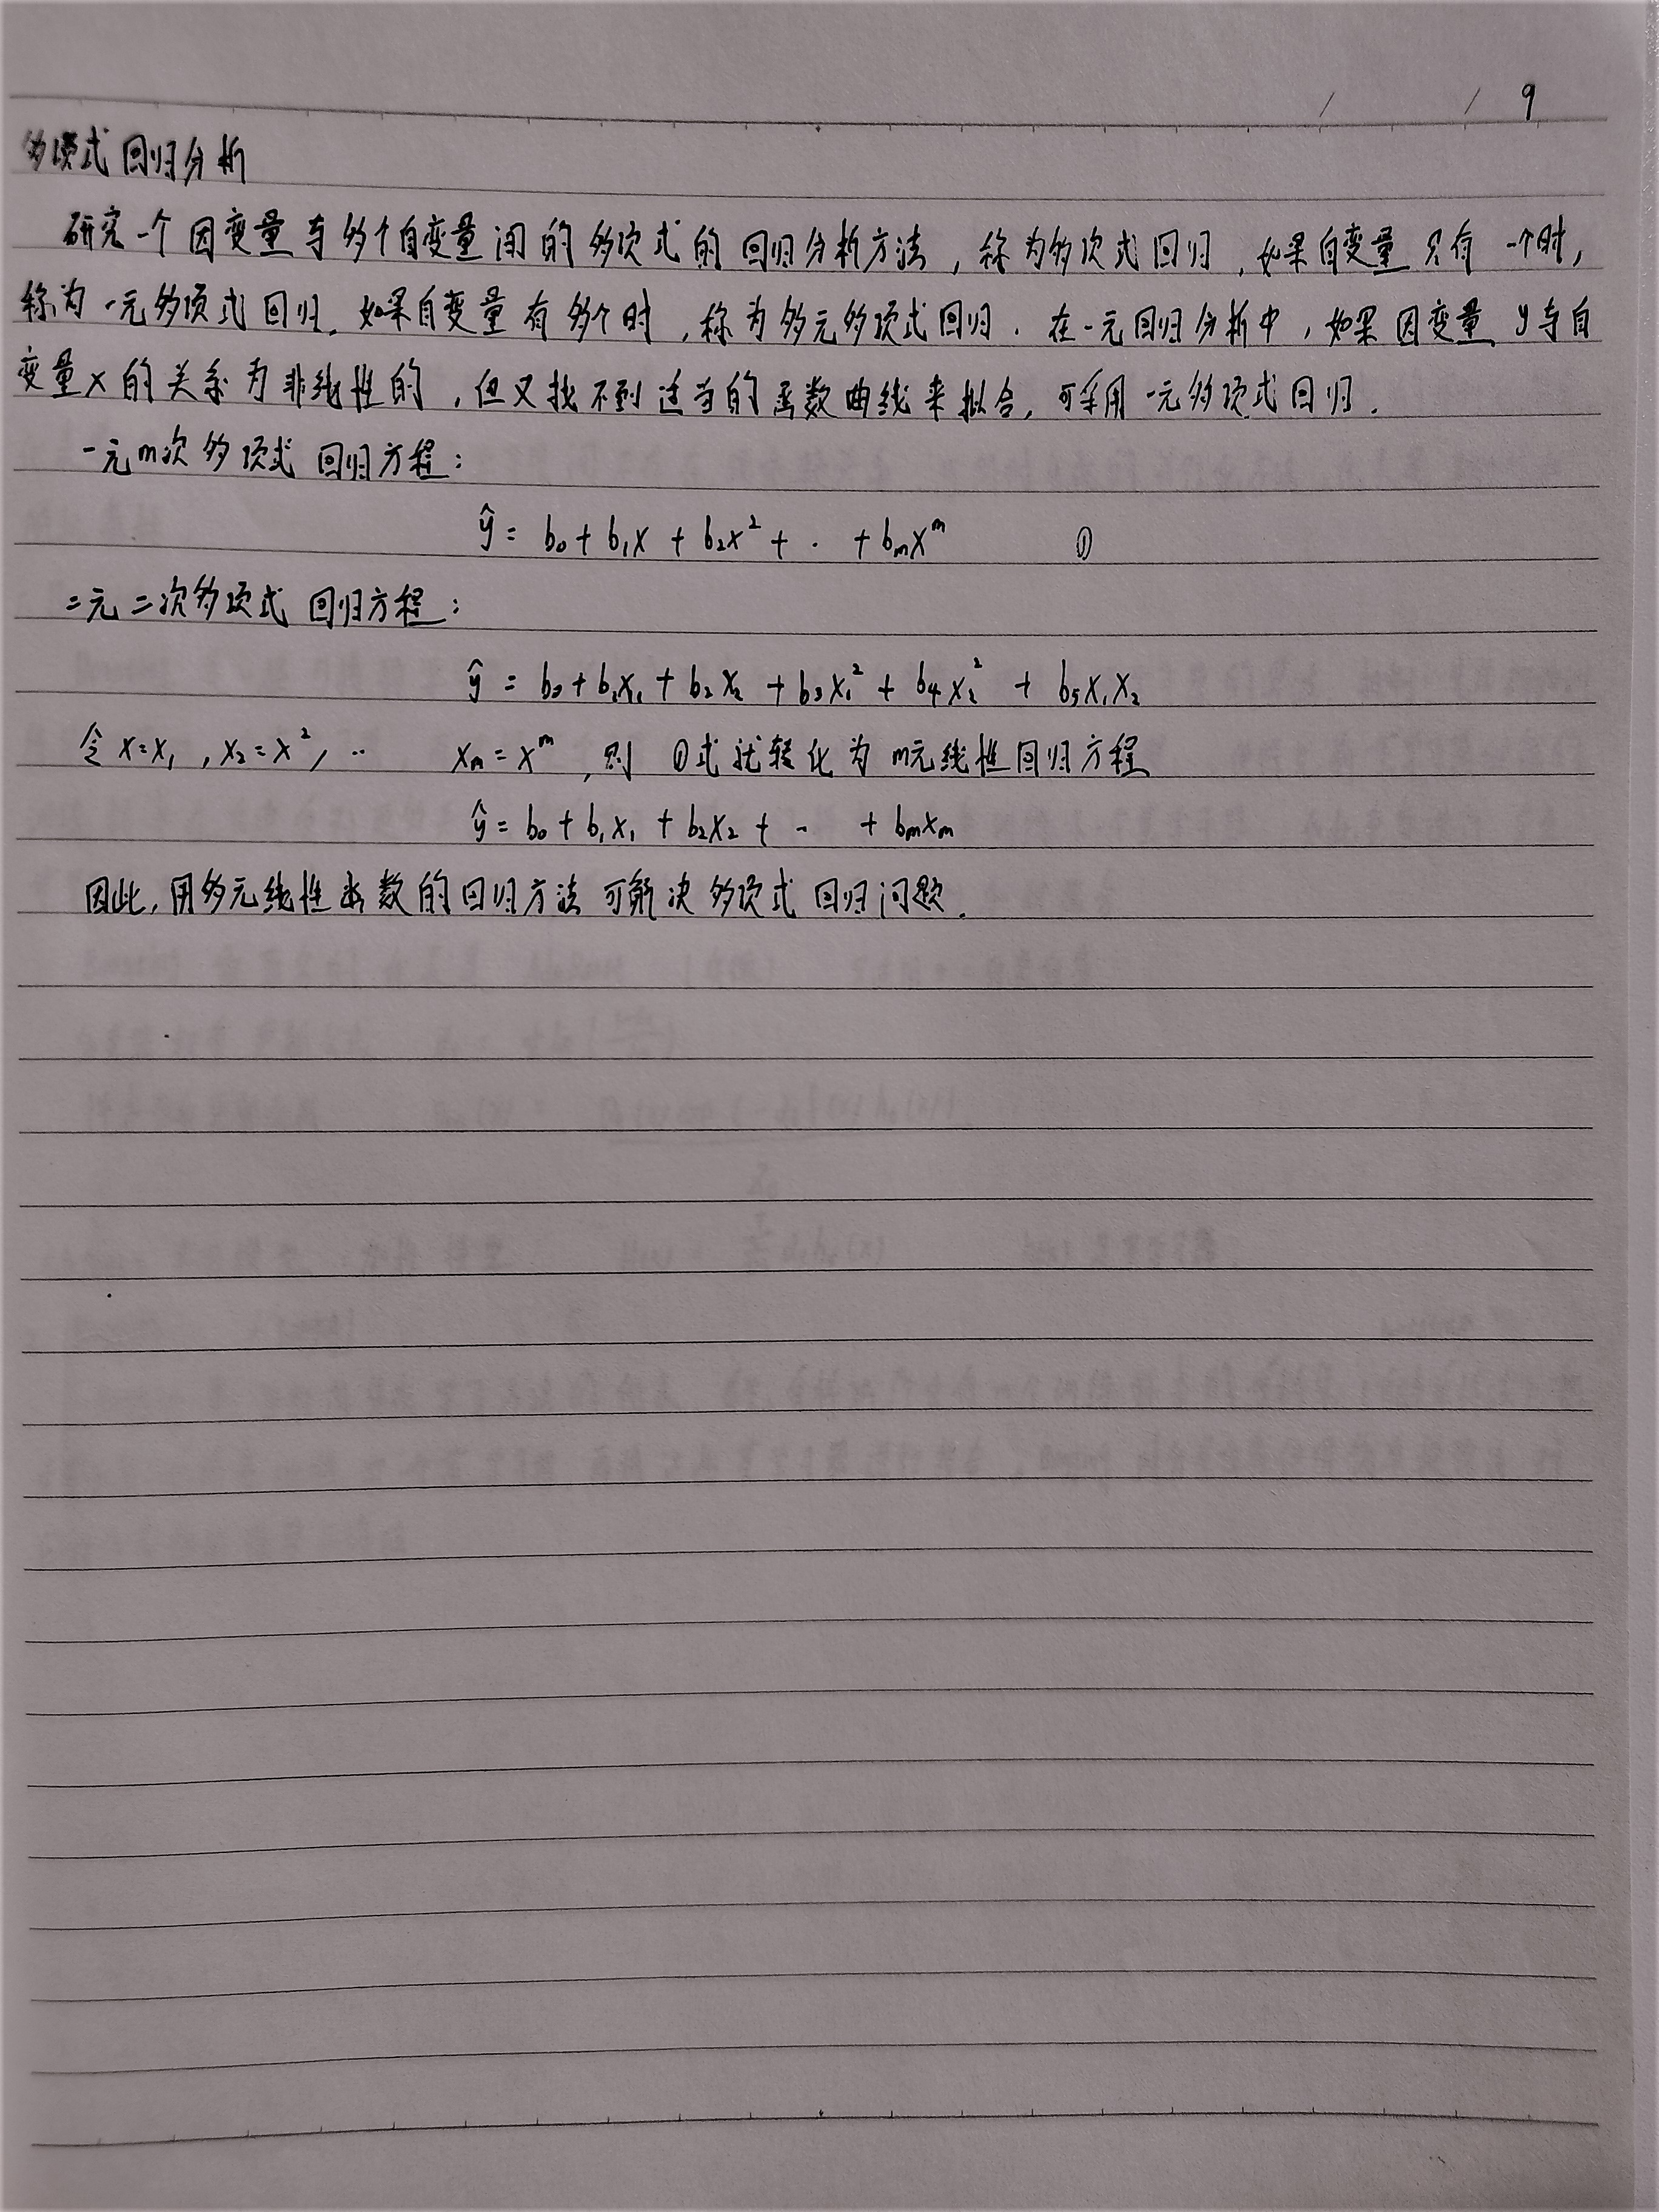 / / 9
多项式回归分析
研究一个因变量与多个自变量间的多项式的回归分析方法，称为多项式回归，如果自变量只有一个时，
称为一元多项式回归，如果自变量有多个时，称为多元多项式回归．在一元回归分析中，如果因变量y与自
变量x的关系为非线性的，但又找不到适当的函数曲线来拟合，可采用一元多项式回归．
一元m次多项式回归方程：
ŷ = b₀ + b₁x + b₂x² + ‥ + bₘxᵐ ①
二元二次多项式回归方程：
ŷ = b₀ + b₁x₁ + b₂x₂ + b₃x₁² + b₄x₂² + b₅x₁x₂
令x=x₁，x₂=x²，‥ xₘ=xᵐ，则①式就转化为m元线性回归方程
ŷ = b₀ + b₁x₁ + b₂x₂ + ‥ + bₘxₘ
因此，用多元线性函数的回归方法可解决多项式回归问题．